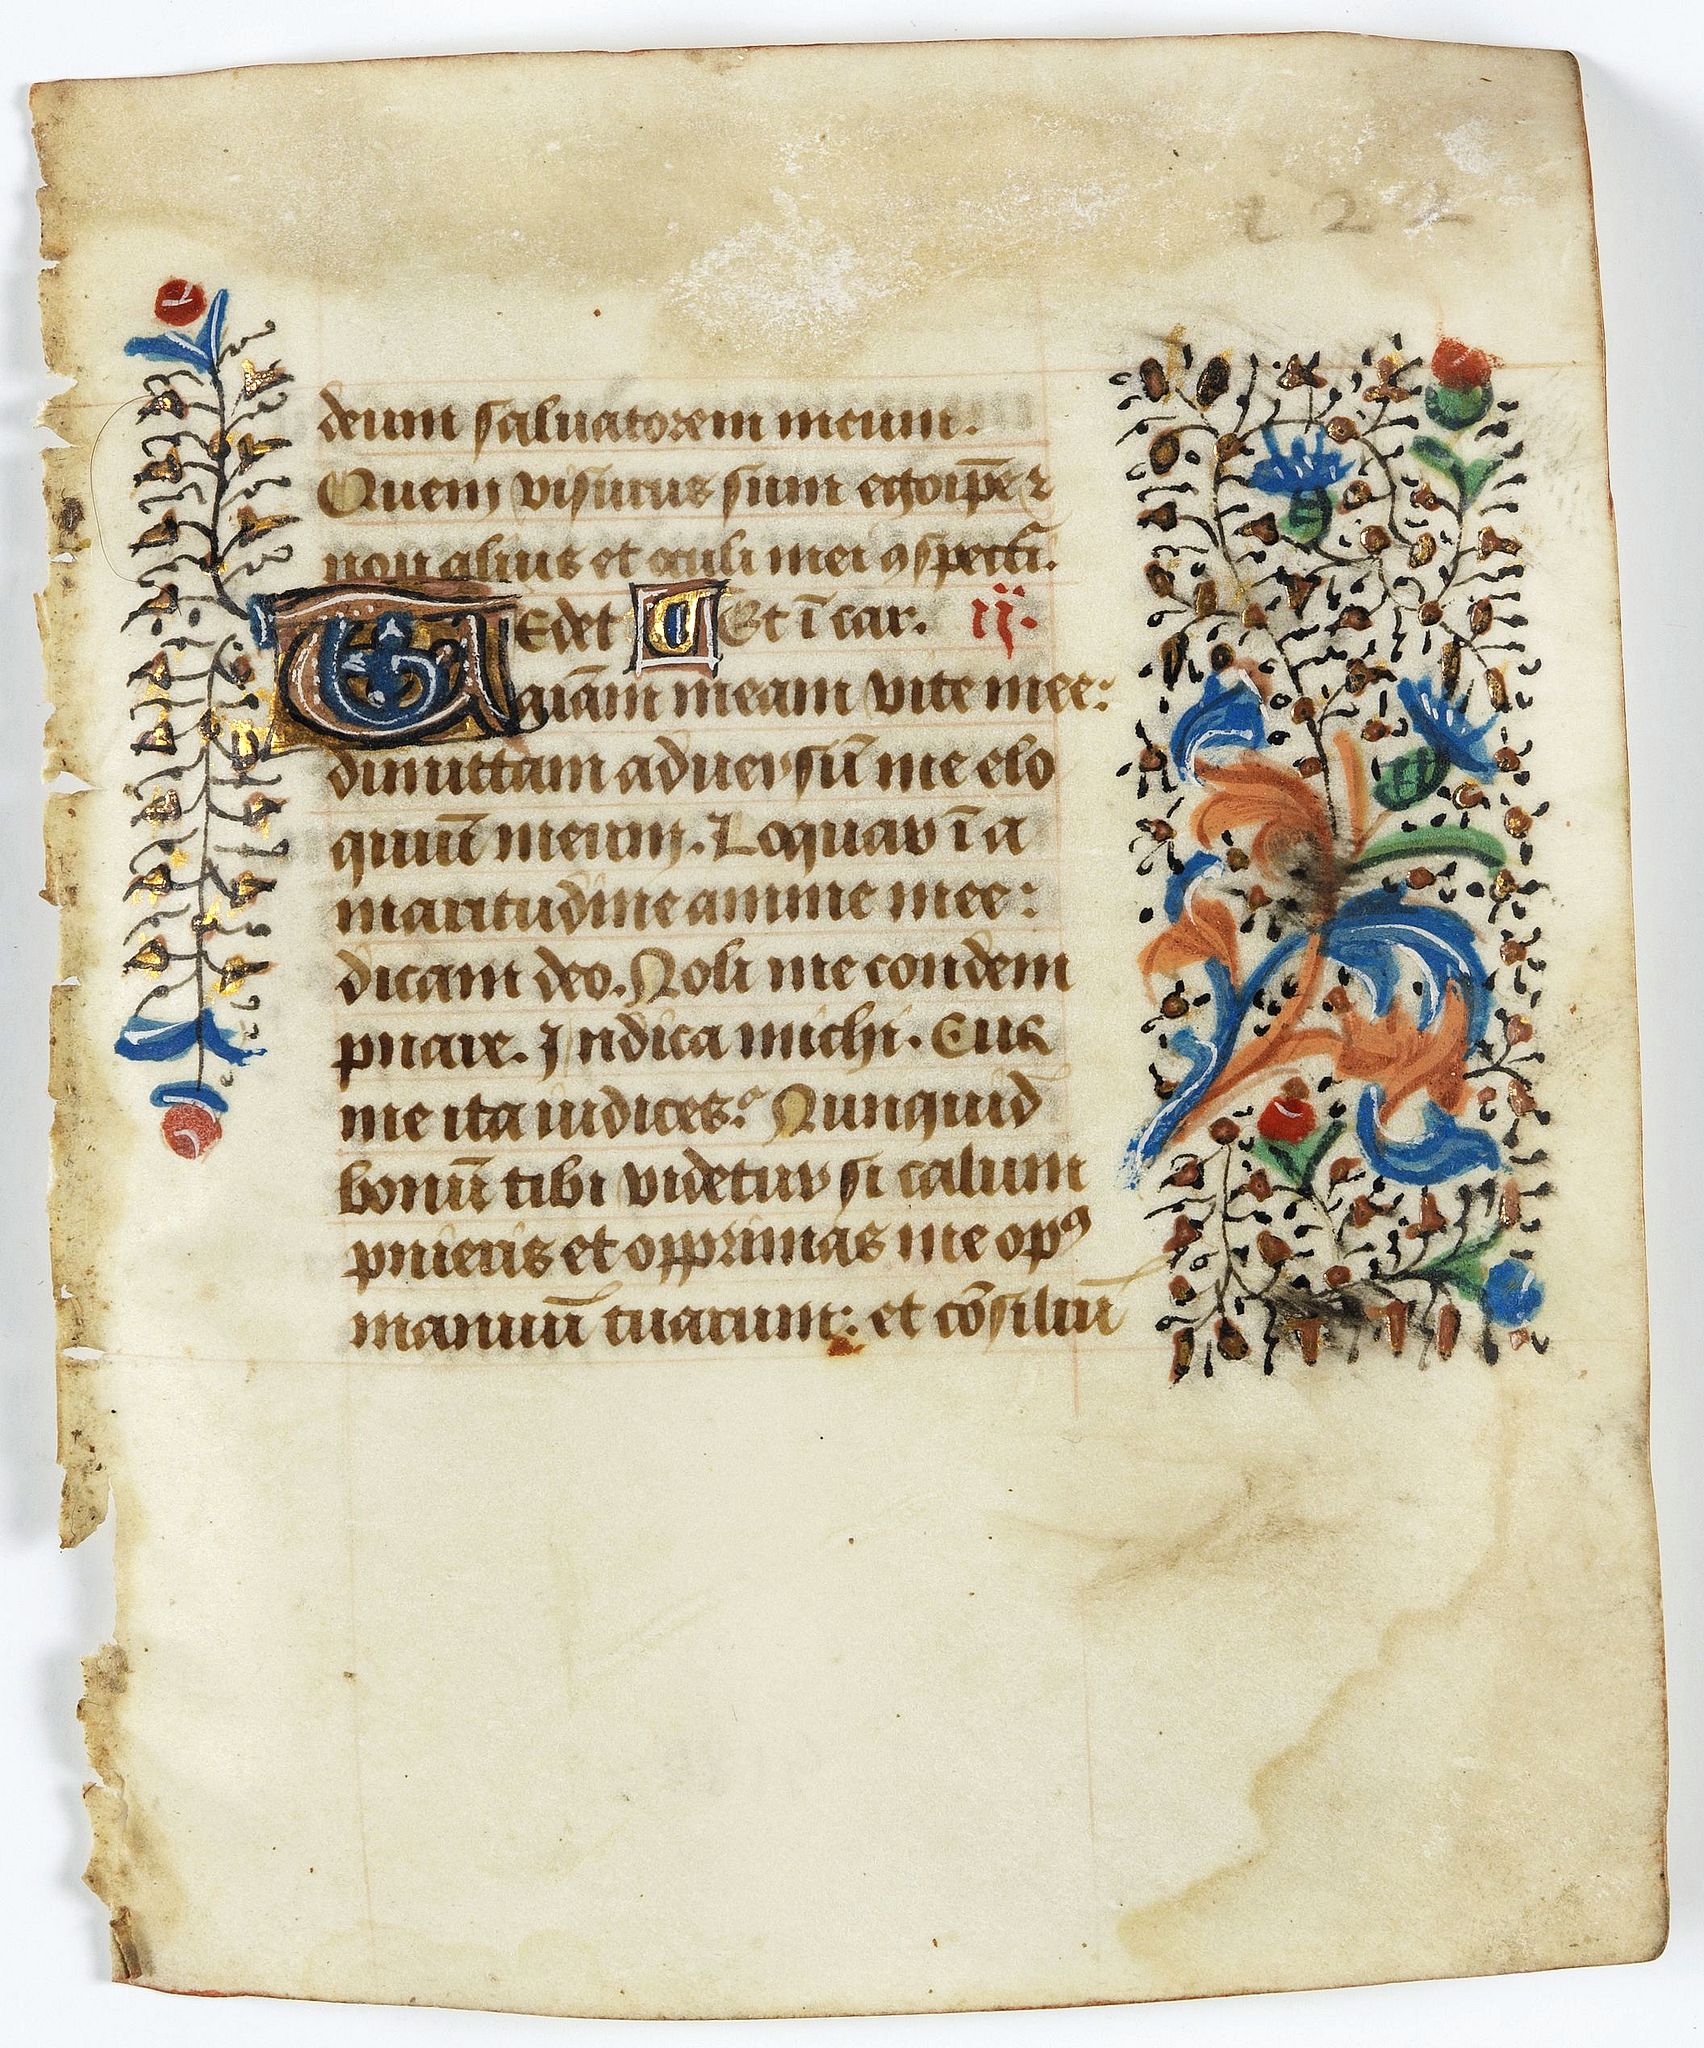 222
deum saluatorem meum.
Quem visurus sum ego ip̄e ⁊
non alius et oculi mei ꝯspectī.
TEdet Et ī car. ij.
aīam meam vite mee:
dimittam aduersū me elo
quiuū meum. Loquar ī a
maritudine anime mee:
dicam deo. Noli me condem
pnare. Indica michi. Cur
me ita iudices? Nunquid
bonū tibi videtur si calum
pnieris et opprimas me opꝰ
manuū tuarum: et cōsiliū